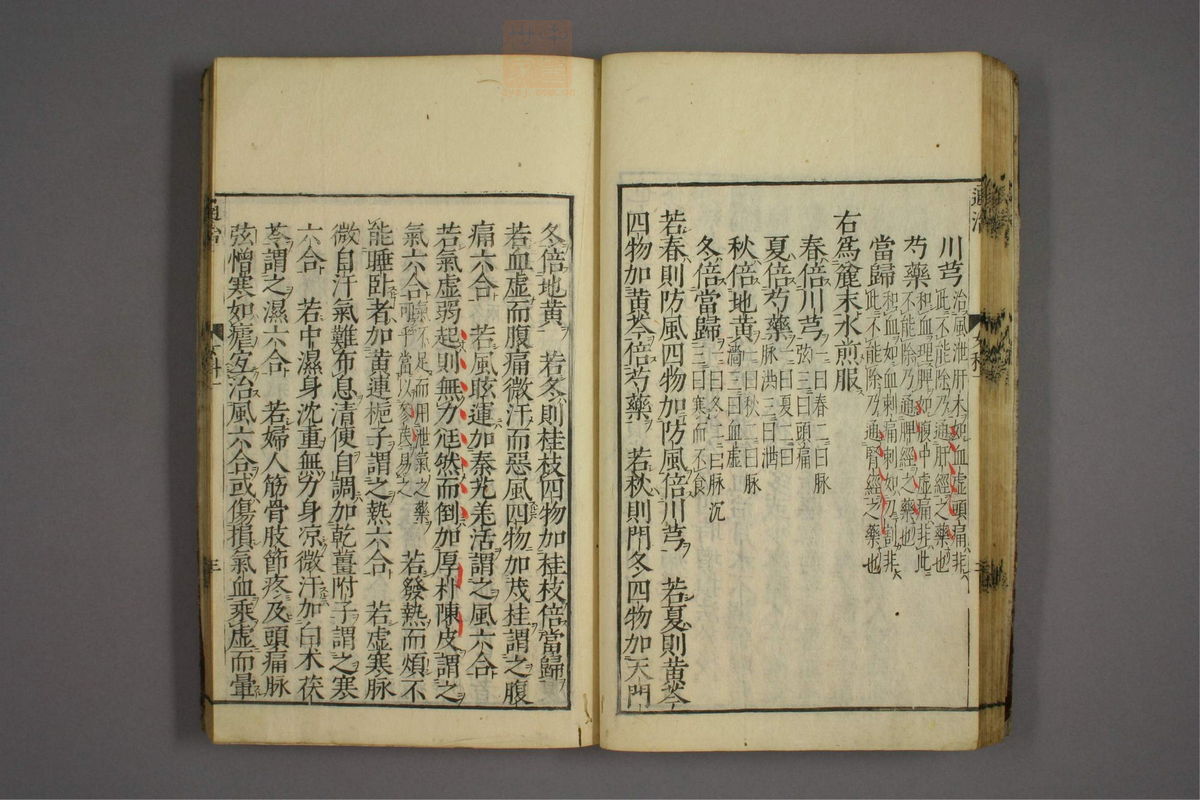 川芎治風泄肝木如血虛頭痛非此不能除乃通肝經之藥也
芍藥和血理脾如腹中虛痛非此不能除乃通脾經之藥也
當歸和血如血刺痛刺如刀割非此不能除乃通腎經之藥也
右爲麄末水煎服
春倍川芎一曰春二曰脉弦三曰頭痛
夏倍芍藥一曰夏二曰脉洪三曰泄
秋倍地黃一曰秋二曰脉濇三曰血虛
冬倍當歸一曰冬二曰脉沉三曰寒而不食
若春則防風四物加防風倍川芎 若夏則黃芩
四物加黃芩倍芍藥 若秋則門冬四物加天門
冬倍地黃 若冬則桂枝四物加桂枝倍當歸
若血虛而腹痛微汗而惡風四物加茂桂謂之腹
痛六合 若風眩運加秦艽羌活謂之風六合
若氣虛弱起則無力尪然而倒加厚朴陳皮謂之
氣六合氣不足而用泄氣之藥可乎當以參茂易之 若發熱而煩不
能睡臥者加黃連梔子謂之熱六合 若虛寒脉
微自汗氣難布息清便自調加乾薑附子謂之寒
六合 若中濕身沈重無力身凉微汗加白朮茯
苓謂之濕六合 若婦人筋骨肢節疼及頭痛脉
弦憎寒如瘧宜治風六合或傷損氣血乘虛而暈
通治
三
通治
三